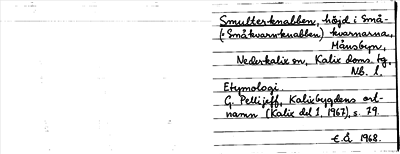 Smulterknabben, höjd i Små-
(: Småkvarnknabben) kvarnarna,
Månsbyn,
Nederkalix sn, Kalix doms. tg,
Nb. l.
Etymologi.
G. Pellijeff, Kalixbygdens ort-
namn (Kalix del 1, 1967), s. 79.
E.Å 1968.